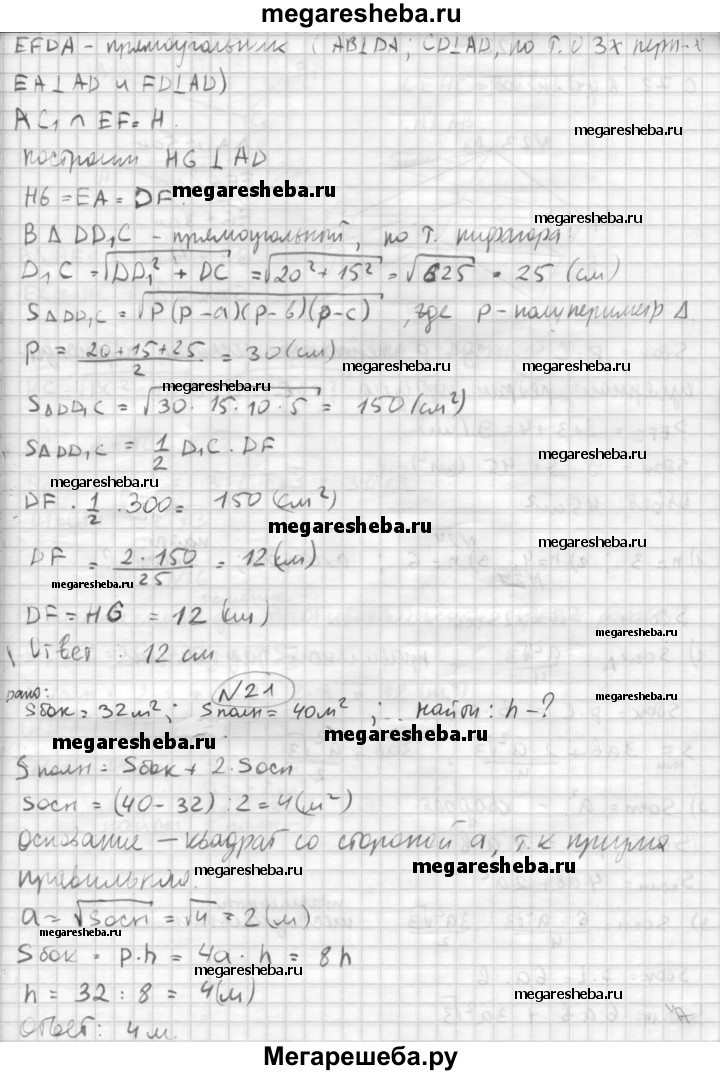 megaresheba.ru
EFDA - прямоугольник ( AB⊥DA; CD⊥AD, по т. о 3х перп-х
EA⊥AD и FD⊥AD)
AC₁ ∩ EF = H.
megaresheba.ru
построим HG ⊥ AD
megaresheba.ru
HG = EA = DF.
megaresheba.ru
В Δ DD₁C - прямоугольный, по т. пифагора:
D₁C = √DD₁² + DC = √20² + 15² = √625 = 25 (см)
SΔDD₁C = √P(p-a)(p-б)(p-c) , где p - полупериметр Δ.
P = 20+15+25/2 = 30 (см)
megaresheba.ru megaresheba.ru
megaresheba.ru
SΔDD₁C = √30 · 15 · 10 · 5 = 150 (см²)
SΔDD₁C = 1/2 D₁C · DF
megaresheba.ru
megaresheba.ru
DF · 1/2 · 300 = 150 (см²)
megaresheba.ru
megaresheba.ru
DF = 2·150/25 = 12 (см)
megaresheba.ru
DF = HG = 12 (см)
megaresheba.ru
Ответ : 12 см
дано: №21
megaresheba.ru
Sбок = 32м²; Sполн = 40м² ; найти: h - ?
megaresheba.ru megaresheba.ru
Sполн = Sбок + 2·Sосн
Sосн = (40-32) : 2 = 4 (м²)
основание - квадрат со стороной a, т.к призма
megaresheba.ru megaresheba.ru
правильная.
a = √Sосн = √4 = 2 (м)
megaresheba.ru megaresheba.ru
Sбок = p·h = 4a · h = 8h
megaresheba.ru
h = 32 : 8 = 4 (м)
megaresheba.ru
ответ: 4 м.
Мегарешеба.ру